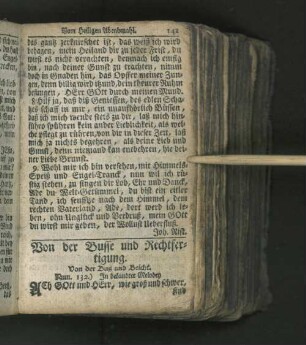 Vom Heiligen Abendmahl. 141
das gantz zerknirschet ist, das weiß ich wird
behagen, mein Heiland dir zu jeder Frist, du
wirst es nicht verachten, demnach ich emsig
nach deiner Gunst zu trachten, nimm
doch in Gnaden hin, das Opffer meiner Zun-
gen, denn billig wird itzund, dein theurer Ruhm
besungen, HErr GOtt durch meinen Mund.
8. Hilf ja, daß diß Geniessen, des edlen Scha-
tzes schaff in mir, ein unaufhörlich Büssen,
daß ich mich wende stets zu dir, laß mich hin-
führo spühren kein ander Lieblichkeit, als wel-
che pflegt zu rühren, von dir in dieser Zeit, laß
mich ja nichts begehren, als deine Lieb und
Gunst, denn niemand kan entbehren, hie dei-
ner Liebe Brunst.
9. Wohl mir ich bin versehen, mit Himmels-
Speiß und Engel-Tranck, nun will ich rü-
stig stehen, zu singen dir Lob, Ehr und Danck,
Ade du Welt-Getümmel, du bist ein eitler
Tand, ich seufftze nach dem Himmel, dem
rechten Vaterland, Ade, dort werd ich le-
ben, ohn Unglück und Verdruß, mein GOtt
du wirst mir geben, der Wollust Ueberfluß.
Joh. Rist.
Von der Busse und Rechtfer-
tigung.
Von der Buß und Beicht.
Num. 132.) In bekannter Melodey
ACh GOtt und HErr, wie groß und schwer,
sind